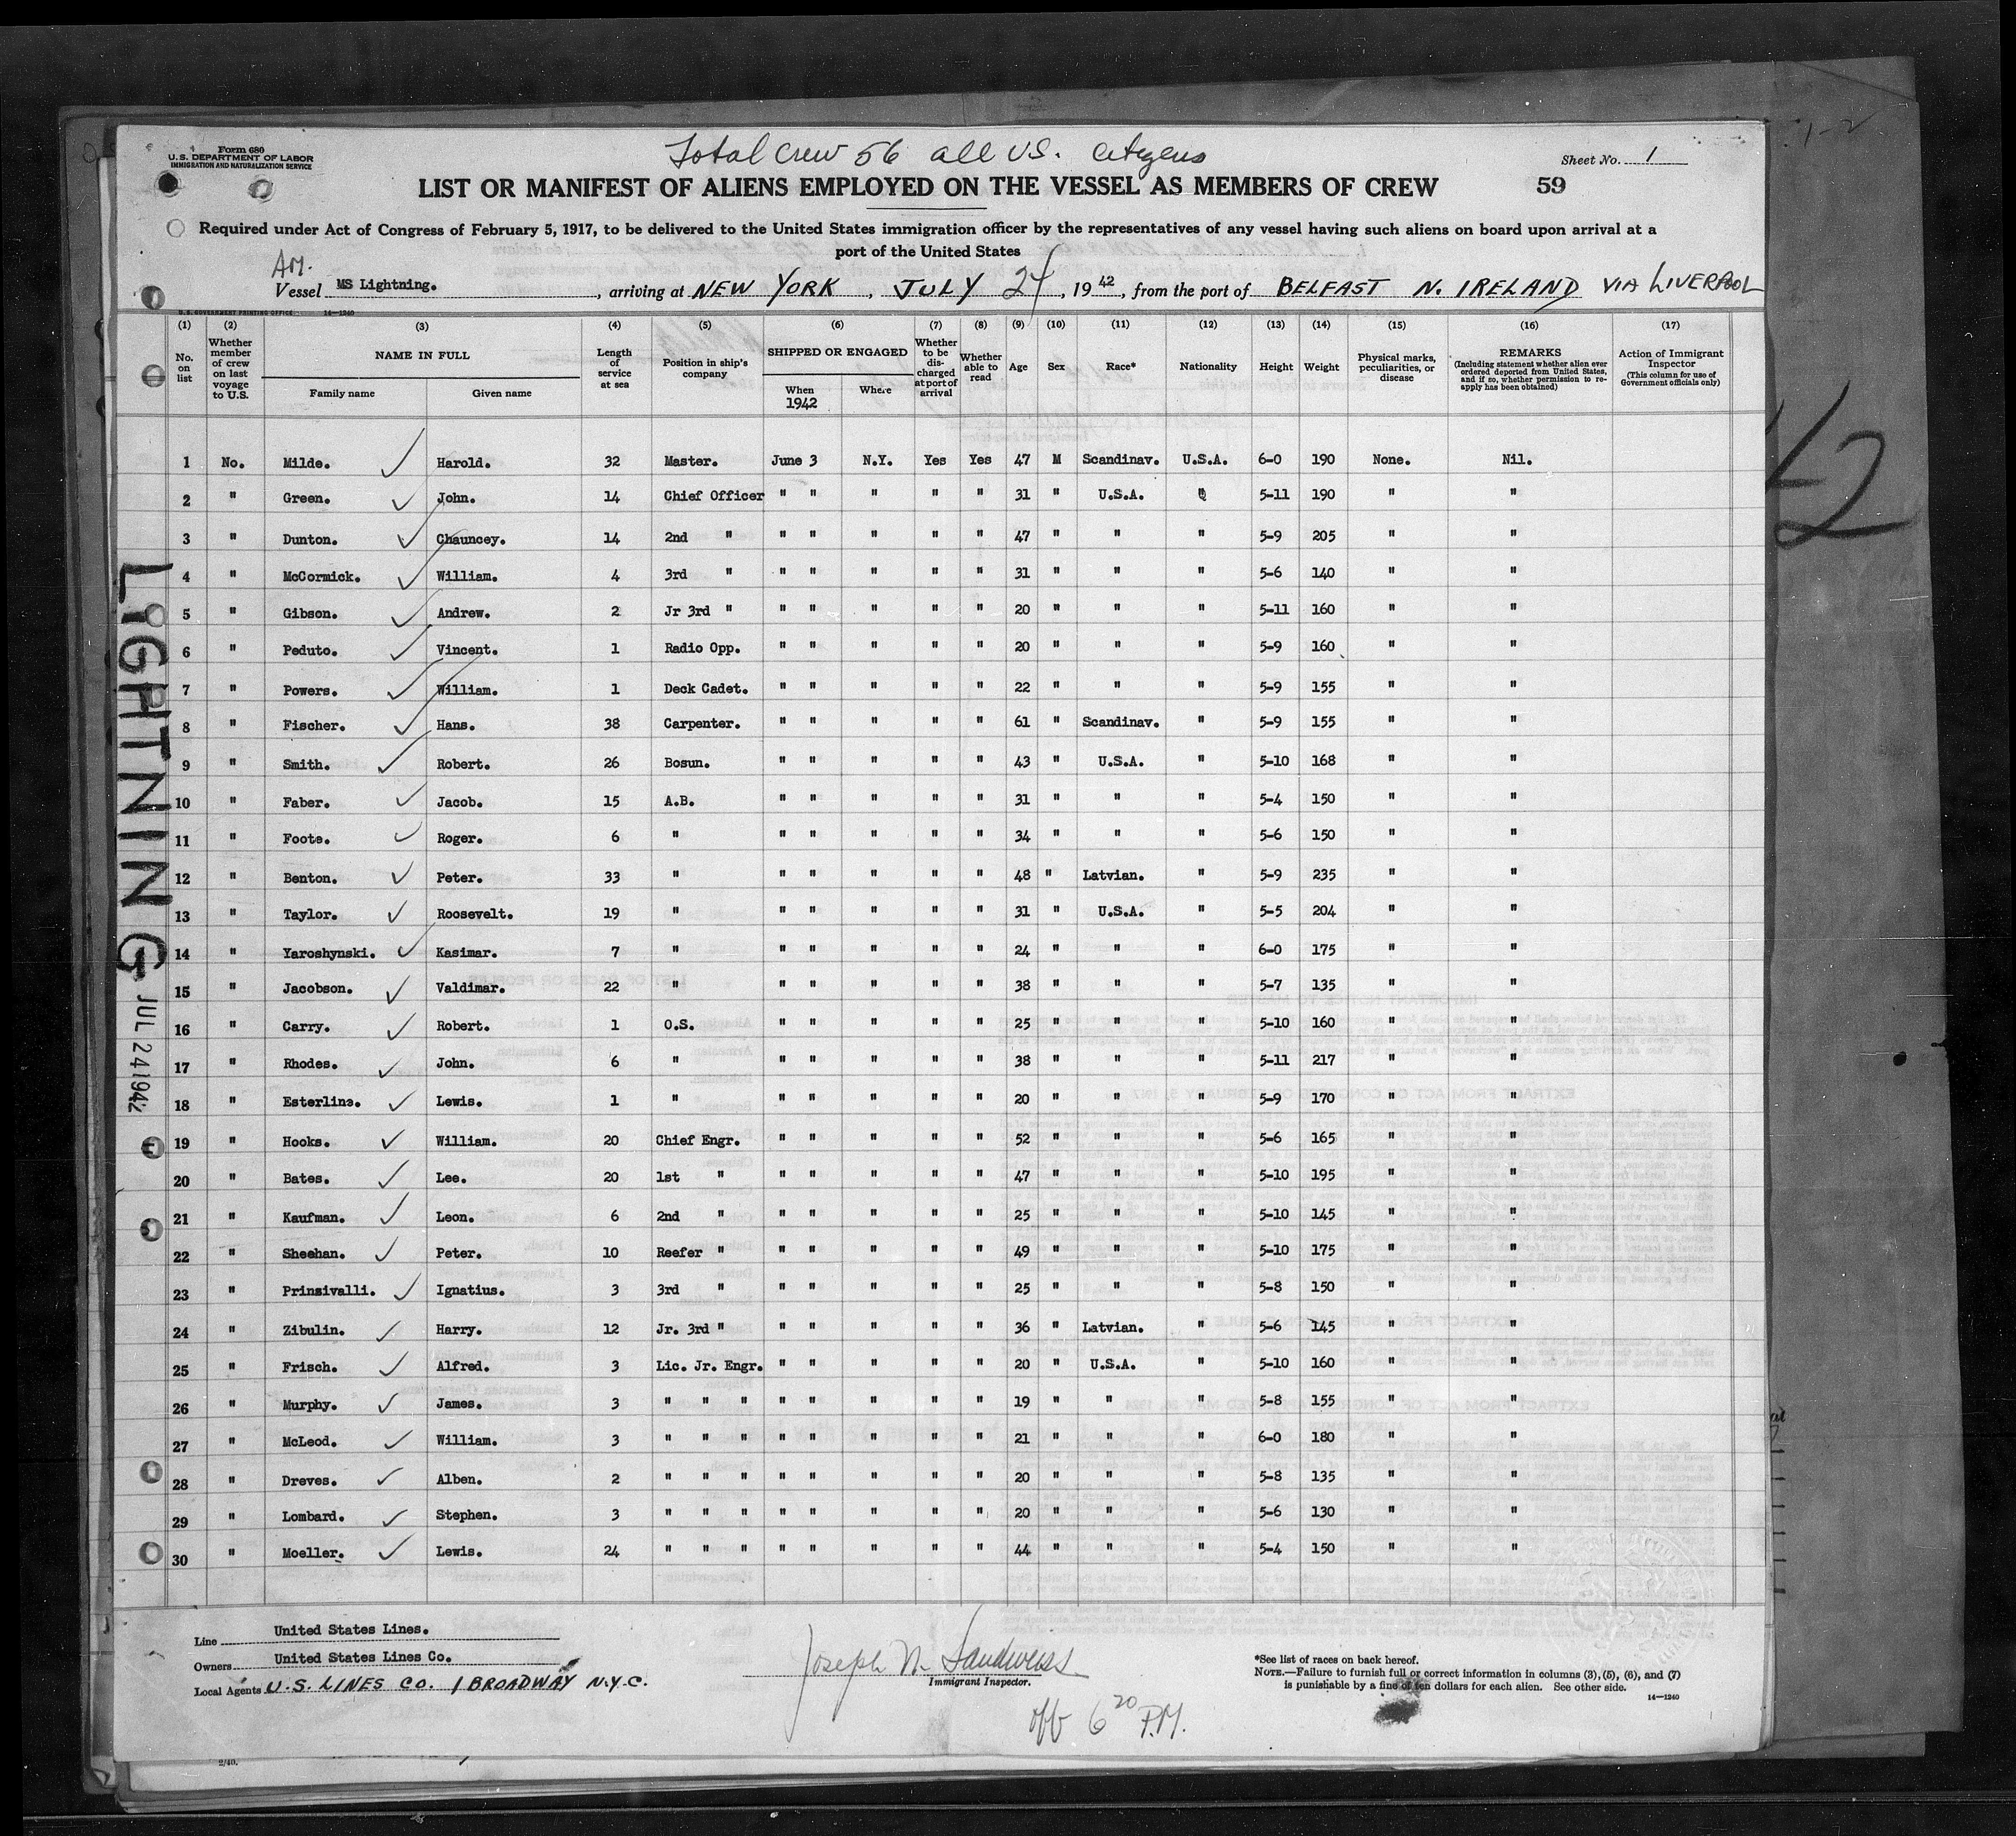 Form 680
U.S. DEPARTMENT OF LABOR
IMMIGRATION AND NATURALIZATION SERVICE
Total crew 56 all U.S. citizens
Sheet No. 1
LIST OR MANIFEST OF ALIENS EMPLOYED ON THE VESSEL AS MEMBERS OF CREW
59
Required under Act of Congress of February 5, 1917, to be delivered to the United States immigration officer by the representatives of any vessel having such aliens on board upon arrival at a
port of the United States
Am.
Vessel MS Lightning. , arriving at NEW YORK , JULY 24 , 1942, from the port of BELFAST N. IRELAND VIA LIVERPOOL
U.S. GOVERNMENT PRINTING OFFICE 14—1240
(1) (2) (3) (4) (5) (6) (7) (8) (9) (10) (11) (12) (13) (14) (15) (16) (17)
No. on list
Whether member of crew on last voyage to U.S.
NAME IN FULL
Family name
Given name
Length of service at sea
Position in ship's company
SHIPPED OR ENGAGED
When
1942
Where
Whether to be discharged at port of arrival
Whether able to read
Age
Sex
Race*
Nationality
Height
Weight
Physical marks, peculiarities, or disease
REMARKS
(Including statement whether alien ever ordered deported from United States, and if so, whether permission to reapply has been obtained)
Action of Immigrant Inspector
(This column for use of Government officials only)
1 No. Milde. Harold. 32 Master. June 3 N.Y. Yes Yes 47 M Scandinav. U.S.A. 6-0 190 None. Nil.
2 " Green. John. 14 Chief Officer " " " " " 31 " U.S.A. " 5-11 190 " "
3 " Dunton. Chauncey. 14 2nd " " " " " " 47 " " " 5-9 205 " "
4 " McCormick. William. 4 3rd " " " " " " 31 " " " 5-6 140 " "
5 " Gibson. Andrew. 2 Jr 3rd " " " " " " 20 " " " 5-11 160 " "
6 " Peduto. Vincent. 1 Radio Opp. " " " " " 20 " " " 5-9 160 " "
7 " Powers. William. 1 Deck Cadet. " " " " " 22 " " " 5-9 155 " "
8 " Fischer. Hans. 38 Carpenter. " " " " " 61 " Scandinav. " 5-9 155 " "
9 " Smith. Robert. 26 Bosun. " " " " " 43 " U.S.A. " 5-10 168 " "
10 " Faber. Jacob. 15 A.B. " " " " " 31 " " " 5-4 150 " "
11 " Foote. Roger. 6 " " " " " " 34 " " " 5-6 150 " "
12 " Benton. Peter. 33 " " " " " " 48 " Latvian. " 5-9 235 " "
13 " Taylor. Roosevelt. 19 " " " " " " 31 " U.S.A. " 5-5 204 " "
14 " Yaroshynski. Kasimar. 7 " " " " " " 24 " " " 6-0 175 " "
15 " Jacobson. Valdimar. 22 " " " " " " 38 " " " 5-7 135 " "
16 " Carry. Robert. 1 O.S. " " " " " 25 " " " 5-10 160 " "
17 " Rhodes. John. 6 " " " " " " 38 " " " 5-11 217 " "
18 " Esterline. Lewis. 1 " " " " " " 20 " " " 5-9 170 " "
19 " Hooks. William. 20 Chief Engr. " " " " " 52 " " " 5-6 165 " "
20 " Bates. Lee. 20 1st " " " " " " 47 " " " 5-10 195 " "
21 " Kaufman. Leon. 6 2nd " " " " " " 25 " " " 5-10 145 " "
22 " Sheehan. Peter. 10 Reefer " " " " " " 49 " " " 5-10 175 " "
23 " Prinsivalli. Ignatius. 3 3rd " " " " " " 25 " " " 5-8 150 " "
24 " Zibulin. Harry. 12 Jr. 3rd " " " " " " 36 " Latvian. " 5-6 145 " "
25 " Frisch. Alfred. 3 Lic. Jr. Engr. " " " " " 20 " U.S.A. " 5-10 160 " "
26 " Murphy. James. 3 " " " " " " " " 19 " " " 5-8 155 " "
27 " McLeod. William. 3 " " " " " " " " 21 " " " 6-0 180 " "
28 " Dreves. Alben. 2 " " " " " " " " 20 " " " 5-8 135 " "
29 " Lombard. Stephen. 3 " " " " " " " " 20 " " " 5-6 130 " "
30 " Moeller. Lewis. 24 " " " " " " " " 44 " " " 5-4 150 " "
LIGHTNING JUL 24 1942
Line United States Lines.
Owners United States Lines Co.
Local Agents U.S. LINES CO. 1 BROADWAY N.Y.C.
Joseph N. Sandweiss
Immigrant Inspector.
off 6 20 P.M.
*See list of races on back hereof.
NOTE.—Failure to furnish full or correct information in columns (3), (5), (6), and (7)
is punishable by a fine of ten dollars for each alien. See other side.
14—1240
2/40.
42
1-2